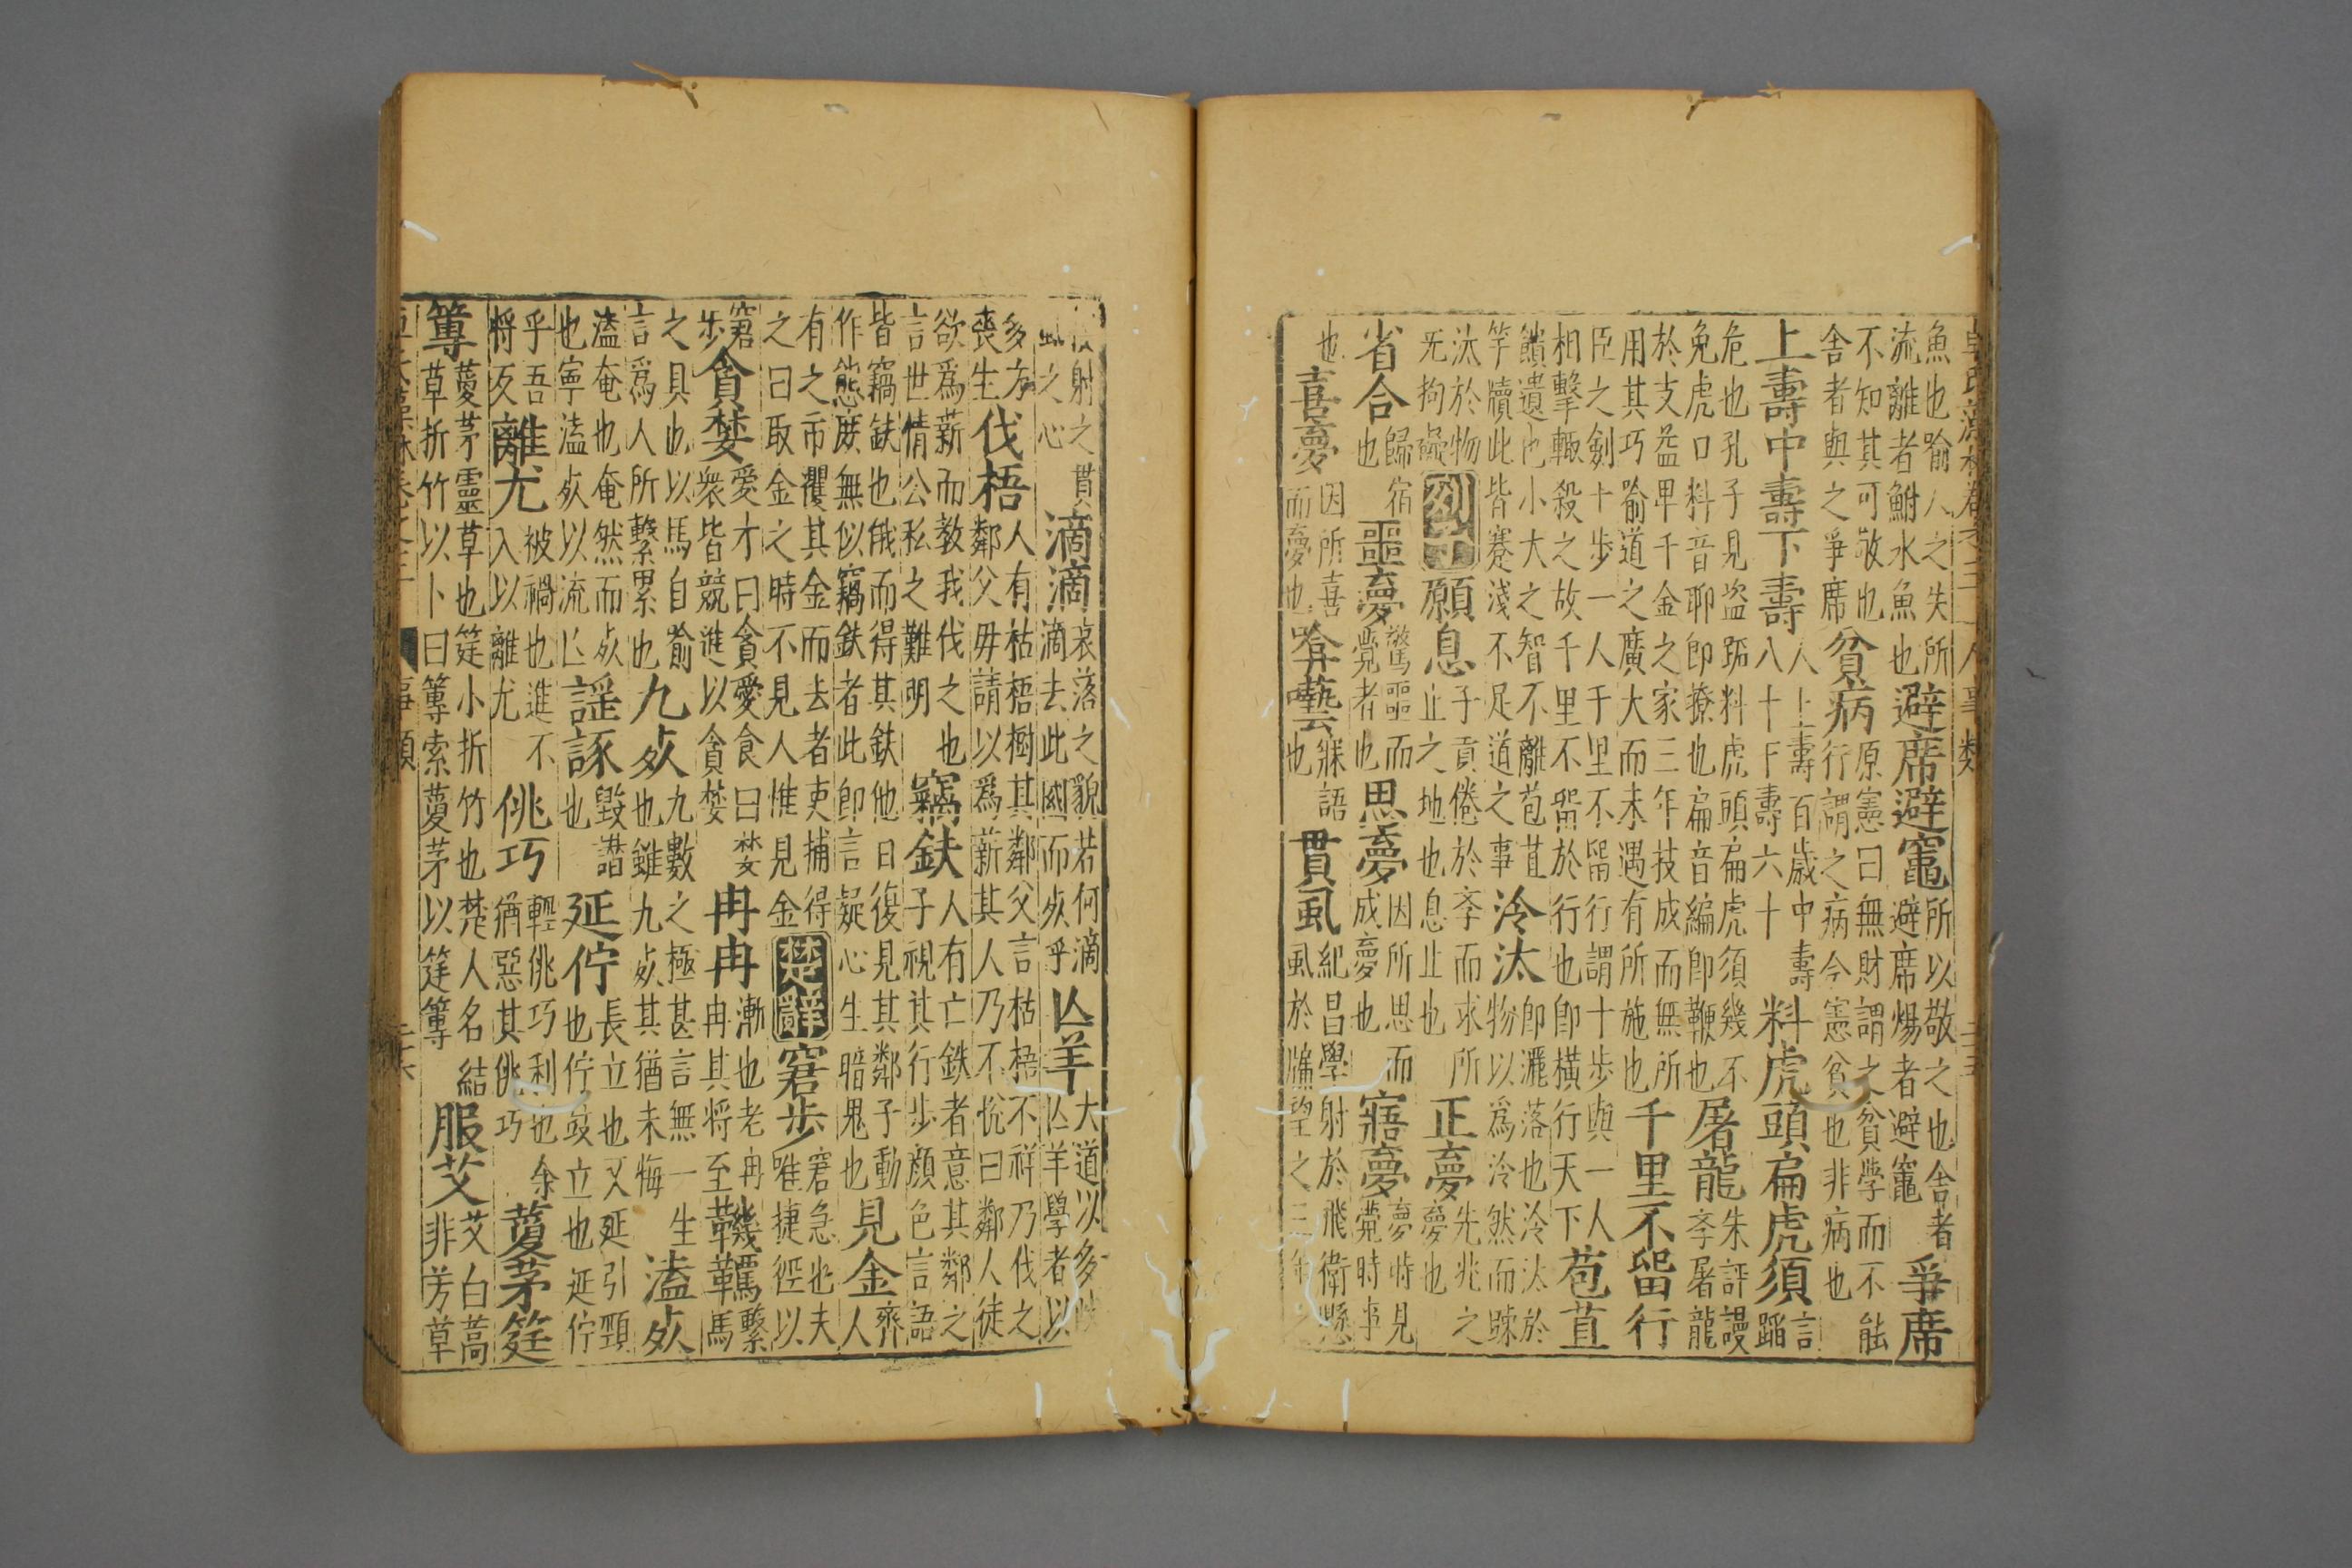 卓氏藻林卷之三 人事類 二十五
魚也喻人之失所流離者鮒水魚也避席避竈所以敬之也舍者避席煬者避竈爭席
不知其可敬也舍者與之爭席貧病原憲曰無財謂之貧學而不能行謂之病今憲貧也非病也
上壽中壽下壽人上壽百歲中壽八十下壽六十料虎頭扁虎須言蹈
危也孔子見盜跖料虎頭扁虎須幾不免虎口料音聊即撩也扁音編即鞭也屠龍朱評謾斈屠龍
於支益單千金之家三年技成而無所用其巧喻道之廣大而未遇有所施也千里不畱行
臣之劍十步一人千里不畱行謂十步與一人相擊輙殺之故千里不畱於行也即橫行天下苞苴
饋遺也小大之智不離苞苴竿牘此皆蹇淺不足道之事泠汰即灑落也泠汰於物以為泠然而踈
汰於物旡拘礙列子願息子貢倦於斈而求所止之地也息止也正夢先兆之夢也
省合歸宿也噩夢驚噩而覺者也思夢因所思而成夢也寤夢夢時見覺時事
也喜夢因所喜而夢也啽囈寐語也貫虱紀昌學射於飛衛懸虱於牖望之三年
射之貫虱之心滴滴哀落之貌若何滴滴去此國而死乎亾羊大道以多岐亾羊學者以
多方喪生伐梧人有枯梧樹其鄰父言枯梧不祥乃伐之鄰父毋請以為薪其人乃不悅曰鄰人徒
欲為薪而教我伐之也言世情公私之難明竊鈇人有亡鈇者意其鄰之子視其行步顏色言語
皆竊鈇也俄而得其鈇他日復見其鄰子動作態度無似竊鈇者此即言疑心生暗鬼也見金齊人
有之市攫其金而去者吏捕得之曰取金之時不見人惟見金楚辭窘步窘急也夫唯捷徑以
窘步貪婪愛才曰貪愛食曰婪衆皆競進以貪婪冉冉漸也老冉冉其將至鞿羈繫馬
之具也以馬自喻言為人所繫累也九死九數之極甚言無一生也雖九死其猶未悔溘死
溘奄也奄然而死也寧溘死以流亾謡諑毀譖也延佇長立也又延引頸也佇竚立也延佇
乎吾將反離尤被禍也進不入以離尤佻巧輕佻巧利也余猶惡其佻巧藑茅筳
篿藑茅靈草也筳小折竹也楚人名結草折竹以卜曰篿索藑茅以筳篿服艾艾白蒿非芳草